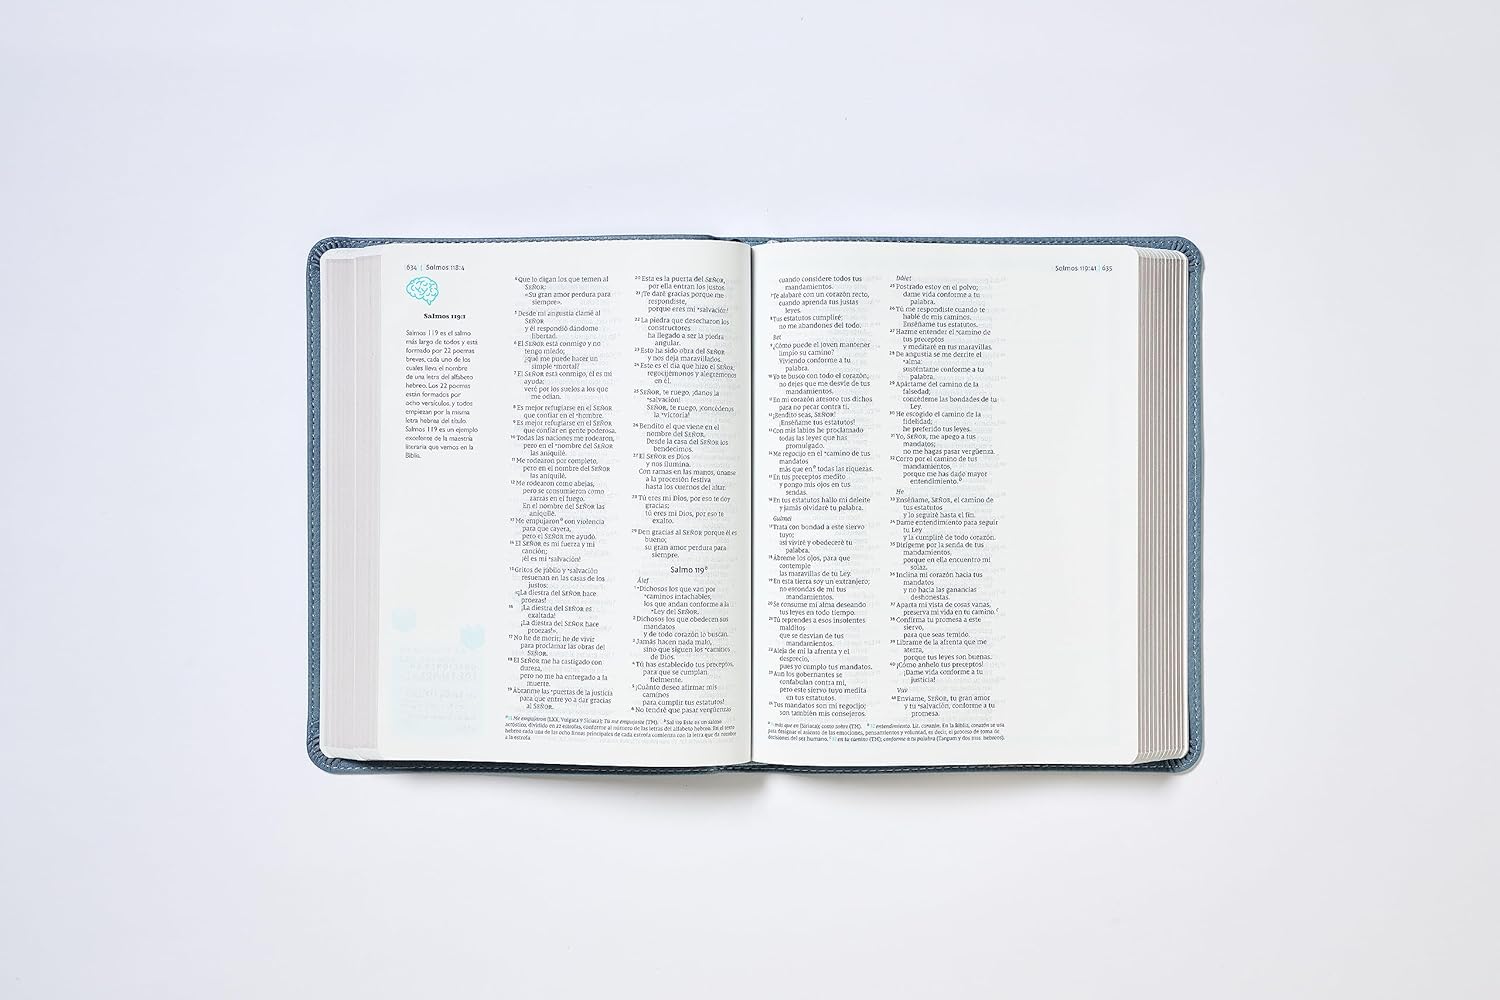 634 | Salmos 118:4
Salmos 119:1
Salmos 119 es el salmo
más largo de todos y está
formado por 22 poemas
breves, cada uno de los
cuales lleva el nombre
de una letra del alfabeto
hebreo. Los 22 poemas
están formados por
ocho versículos, y todos
empiezan por la misma
letra hebrea del título.
Salmos 119 es un ejemplo
excelente de la maestría
literaria que vemos en la
Biblia.
4 Que lo digan los que temen al
SEÑOR:
«Su gran amor perdura para
siempre».
5 Desde mi angustia clamé al
SEÑOR
y él respondió dándome
libertad.
6 El SEÑOR está conmigo y no
tengo miedo;
¿qué me puede hacer un
simple *mortal?
7 El SEÑOR está conmigo, él es mi
ayuda;
veré por los suelos a los que
me odian.
8 Es mejor refugiarse en el SEÑOR
que confiar en el *hombre.
9 Es mejor refugiarse en el SEÑOR
que confiar en gente poderosa.
10 Todas las naciones me rodearon,
pero en el *nombre del SEÑOR
las aniquilé.
11 Me rodearon por completo,
pero en el nombre del SEÑOR
las aniquilé.
12 Me rodearon como abejas,
pero se consumieron como
zarzas en el fuego.
En el nombre del SEÑOR las
aniquilé.
13 Me empujaron con violencia
para que cayera,
pero el SEÑOR me ayudó.
14 El SEÑOR es mi fuerza y mi
canción;
¡él es mi *salvación!
15 Gritos de júbilo y *salvación
resuenan en las casas de los
justos:
«¡La diestra del SEÑOR hace
proezas!
16 ¡La diestra del SEÑOR es
exaltada!
¡La diestra del SEÑOR hace
proezas!».
17 No he de morir; he de vivir
para proclamar las obras del
SEÑOR.
18 El SEÑOR me ha castigado con
dureza,
pero no me ha entregado a la
muerte.
19 Ábranme las *puertas de la justicia
para que entre yo a dar gracias
al SEÑOR.
20 Esta es la puerta del SEÑOR,
por ella entran los justos.
21 ¡Te daré gracias porque me
respondiste,
porque eres mi *salvación!
22 La piedra que desecharon los
constructores
ha llegado a ser la piedra
angular.
23 Esto ha sido obra del SEÑOR
y nos deja maravillados.
24 Este es el día que hizo el SEÑOR,
regocijémonos y alegrémonos
en él.
25 SEÑOR, te ruego, ¡danos la
*salvación!
SEÑOR, te ruego, ¡concédenos
la *victoria!
26 Bendito el que viene en el
nombre del SEÑOR.
Desde la casa del SEÑOR los
bendecimos.
27 El SEÑOR es Dios
y nos ilumina.
Con ramas en las manos, únanse
a la procesión festiva
hasta los cuernos del altar.
28 Tú eres mi Dios, por eso te doy
gracias;
tú eres mi Dios, por eso te
exalto.
29 Den gracias al SEÑOR porque él es
bueno;
su gran amor perdura para
siempre.
Salmo 119
Álef
1 *Dichosos los que van por
*caminos intachables,
los que andan conforme a la
*Ley del SEÑOR.
2 Dichosos los que obedecen sus
mandatos
y de todo corazón lo buscan.
3 Jamás hacen nada malo,
sino que siguen los *caminos
de Dios.
4 Tú has establecido tus preceptos,
para que se cumplan
fielmente.
5 ¡Cuánto deseo afirmar mis
caminos
para cumplir tus estatutos!
6 No tendré que pasar vergüenzas
13 Me empujaron (LXX, Vulgata y Siríaca); Tú me empujaste (TM). Sal 119 Este es un salmo
acróstico, dividido en 22 estrofas, conforme al número de las letras del alfabeto hebreo. En el texto
hebreo cada una de las ocho líneas principales de cada estrofa comienza con la letra que da nombre
a la estrofa.
Salmos 119:41 | 635
cuando considere todos tus
mandamientos.
7 Te alabaré con un corazón recto,
cuando aprenda tus justas
leyes.
8 Tus estatutos cumpliré;
no me abandones del todo.
Bet
9 ¿Cómo puede el joven mantener
limpio su camino?
Viviendo conforme a tu
palabra.
10 Yo te busco con todo el corazón;
no dejes que me desvíe de tus
mandamientos.
11 En mi corazón atesoro tus dichos
para no pecar contra ti.
12 ¡Bendito seas, SEÑOR!
¡Enséñame tus estatutos!
13 Con mis labios he proclamado
todas las leyes que has
promulgado.
14 Me regocijo en el *camino de tus
mandatos
más que en todas las riquezas.
15 En tus preceptos medito
y pongo mis ojos en tus
sendas.
16 En tus estatutos hallo mi deleite
y jamás olvidaré tu palabra.
Guímel
17 Trata con bondad a este siervo
tuyo;
así viviré y obedeceré tu
palabra.
18 Ábreme los ojos, para que
contemple
las maravillas de tu Ley.
19 En esta tierra soy un extranjero;
no escondas de mí tus
mandamientos.
20 Se consume mi alma deseando
tus leyes en todo tiempo.
21 Tú reprendes a esos insolentes
malditos
que se desvían de tus
mandamientos.
22 Aleja de mí la afrenta y el
desprecio,
pues yo cumplo tus mandatos.
23 Aun los gobernantes se
confabulan contra mí,
pero este siervo tuyo medita
en tus estatutos.
24 Tus mandatos son mi regocijo;
son también mis consejeros.
Dálet
25 Postrado estoy en el polvo;
dame vida conforme a tu
palabra.
26 Tú me respondiste cuando te
hablé de mis caminos.
Enséñame tus estatutos.
27 Hazme entender el *camino de
tus preceptos
y meditaré en tus maravillas.
28 De angustia se me derrite el
*alma:
susténtame conforme a tu
palabra.
29 Apártame del camino de la
falsedad;
concédeme las bondades de tu
Ley.
30 He escogido el camino de la
fidelidad;
he preferido tus leyes.
31 Yo, SEÑOR, me apego a tus
mandatos;
no me hagas pasar vergüenza.
32 Corro por el camino de tus
mandamientos,
porque me has dado mayor
entendimiento.
He
33 Enséñame, SEÑOR, el camino de
tus estatutos
y lo seguiré hasta el fin.
34 Dame entendimiento para seguir
tu Ley
y la cumpliré de todo corazón.
35 Dirígeme por la senda de tus
mandamientos,
porque en ella encuentro mi
solaz.
36 Inclina mi corazón hacia tus
mandatos
y no hacia las ganancias
deshonestas.
37 Aparta mi vista de cosas vanas,
preserva mi vida en tu camino.
38 Confirma tu promesa a este
siervo,
para que seas temido.
39 Líbrame de la afrenta que me
aterra,
porque tus leyes son buenas.
40 ¡Cómo anhelo tus preceptos!
¡Dame vida conforme a tu
justicia!
Vav
41 Envíame, SEÑOR, tu gran amor
y tu *salvación, conforme a tu
promesa.
14 más que en (Siríaca); como sobre (TM). 32 entendimiento. Lit. corazón. En la Biblia, corazón se usa
para designar el asiento de las emociones, pensamientos y voluntad, es decir, el proceso de toma de
decisiones del ser humano. 37 en tu camino (TM); conforme a tu palabra (Targum y dos mss. hebreos).